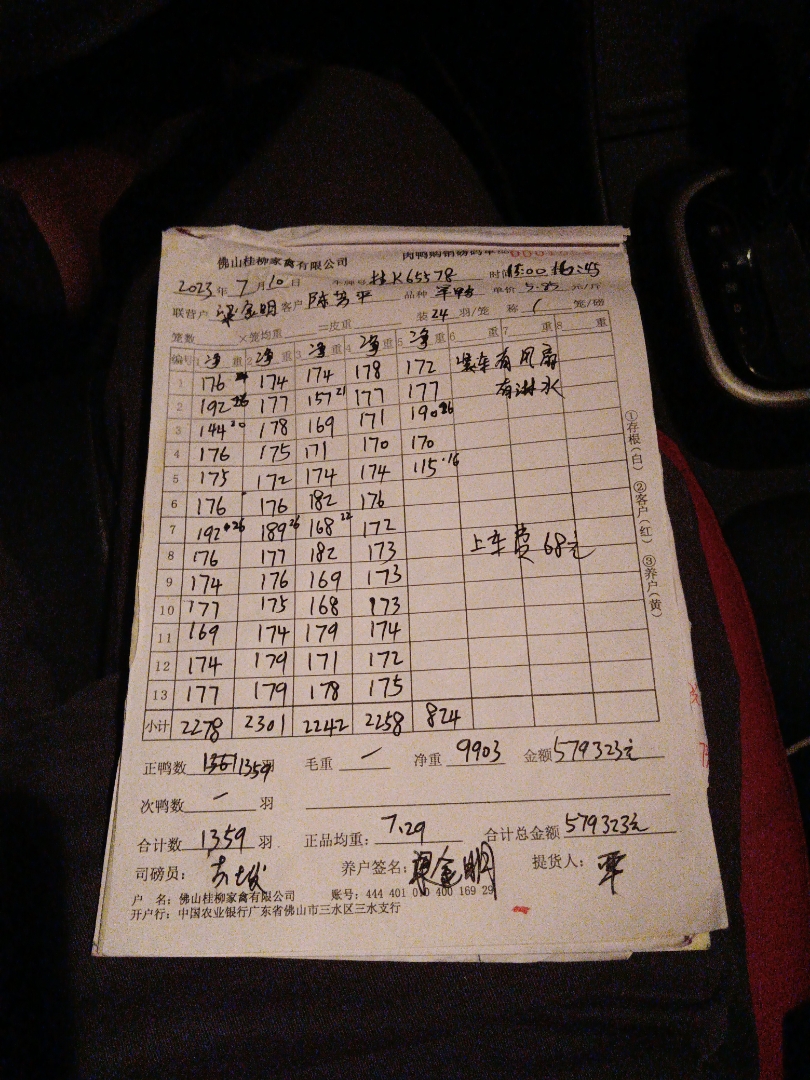 佛山桂柳家禽有限公司 肉鸭购销磅码单
2023年7月10日 车牌号 桂K65578 时间
联营户 梁金明 客户 陈芳平 品种 单价 5.85 元/斤
笼数 ×笼均重 =皮重 装24羽/笼 称 笼/磅
编号 1 净重 2 净重 3 净重 4 净重 5 净重 6 重 7 重 8 重
1 176 174 174 178 172 装车有风扇
2 192 26 177 157 21 177 177 有淋水
3 144 20 178 169 171 190 26
4 176 175 171 170 170
5 175 172 174 174 115 16
6 176 176 182 176
7 192 26 189 26 168 22 172
8 176 177 182 173 上车费68元
9 174 176 169 173
10 177 175 168 173
11 169 174 179 174
12 174 179 171 172
13 177 179 178 175
小计 2278 2301 2242 2258 824
正鸭数 1361 1359 羽 毛重 — 净重 9903 金额 579323元
次鸭数 — 羽
合计数 1359 羽 正品均重: 7.29 合计总金额 579323元
司磅员: 养户签名: 梁金明 提货人:
户 名: 佛山桂柳家禽有限公司 账号: 444 401 010 400 169 29
开户行: 中国农业银行广东省佛山市三水区三水支行
①存根(白) ②客户(红) ③养户(黄)